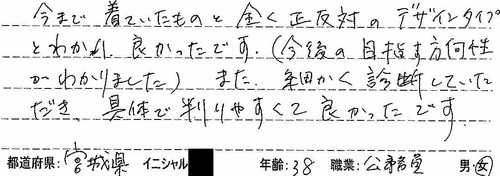 今まで着ていたものと全く正反対のデザインタイプ
とわかれ、良かったです。(今後の目指す方向性
がわかりました) また、細かく診断していた
だき、具体で判りやすくて良かったです。
都道府県:宮城県 イニシャル 年齢:38 職業:公務員 男・女